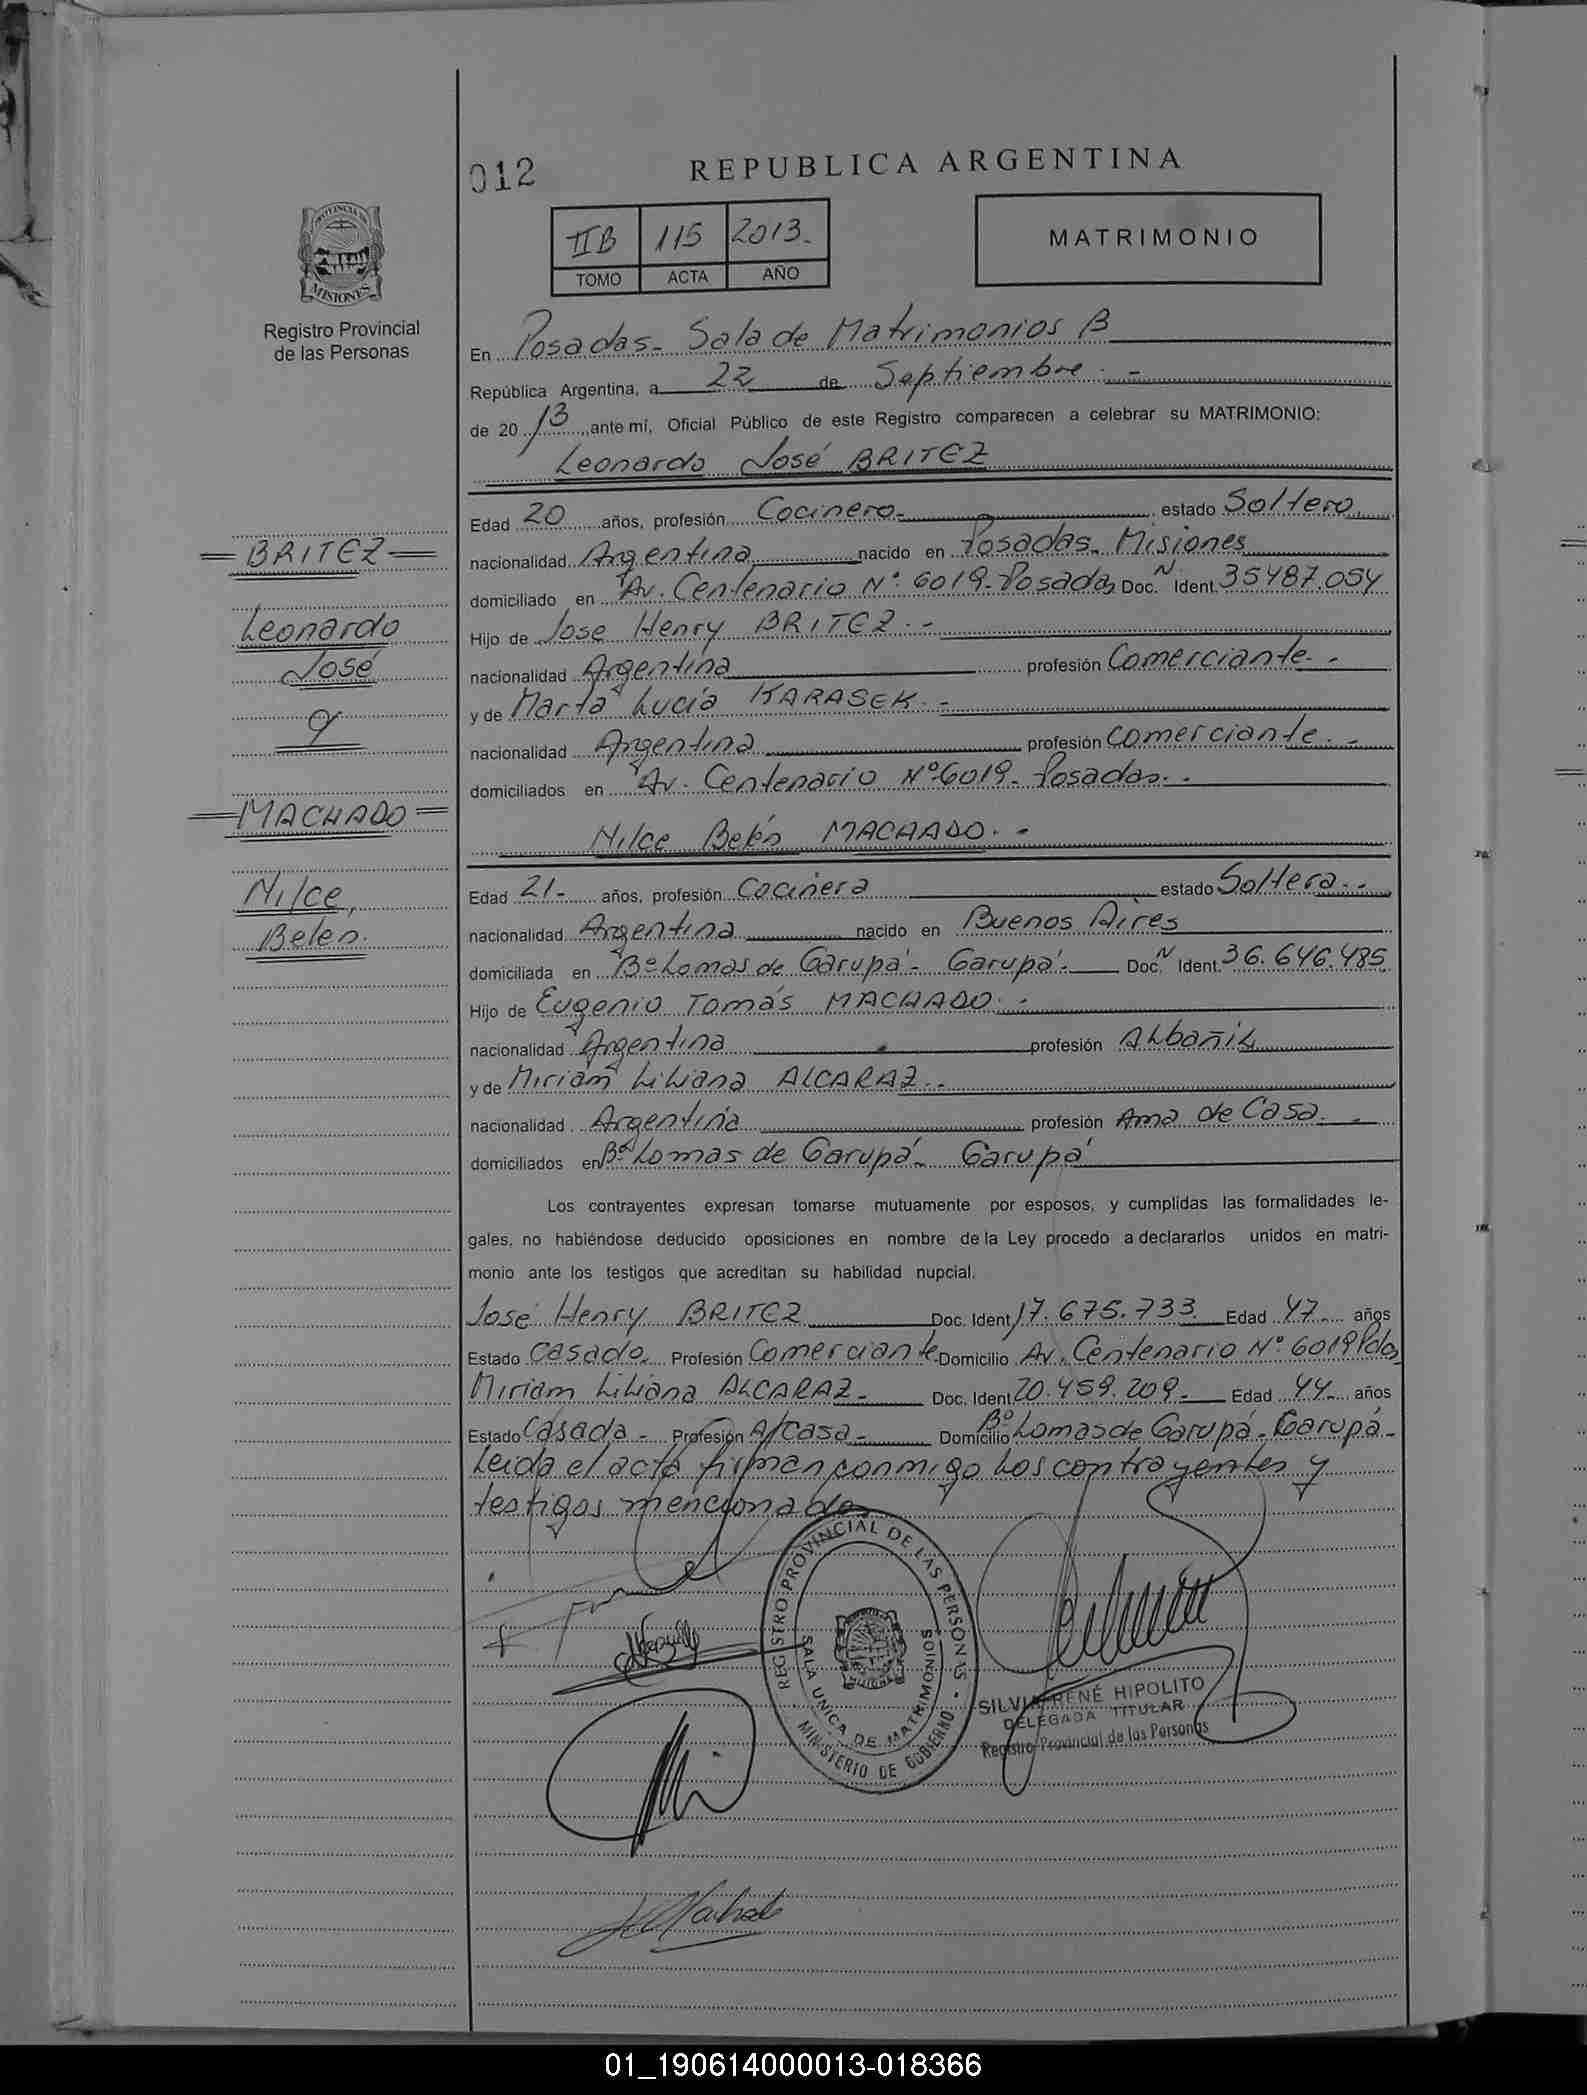 012
REPUBLICA ARGENTINA
IIB 115 2013.
TOMO ACTA AÑO
MATRIMONIO
PROVINCIA DE
MISIONES
Registro Provincial
de las Personas
En Posadas- Sala de Matrimonios B
República Argentina, a 22 de Septiembre.-
de 2013, ante mí, Oficial Público de este Registro comparecen a celebrar su MATRIMONIO:
Leonardo José BRITEZ
Edad 20 años, profesión Cocinero- estado Soltero.
nacionalidad Argentina nacido en Posadas- Misiones
domiciliado en Av. Centenario Nº 6019-Posadas Doc. N Ident. 35487.054
Hijo de Jose Henry BRITEZ.-
nacionalidad Argentina profesión Comerciante.-
y de Marta Lucía KARASEK.-
nacionalidad Argentina profesión comerciante.-
domiciliados en Av. Centenario Nº 6019- Posadas.-
=BRITEZ=
Leonardo
José
y
=MACHADO=
Nilce,
Belen.
Nilce Belén MACHADO.-
Edad 21- años, profesión Cocinera estado Soltera.-
nacionalidad Argentina nacido en Buenos Aires
domiciliada en Bº Lomas de Garupá- Garupá.- Doc. N Ident. 36.646.485
Hijo de Eugenio Tomás MACHADO.-
nacionalidad Argentina profesión Albañil
y de Miriam Liliana ALCARAZ.-
nacionalidad Argentina profesión Ama de Casa.-
domiciliados en Bº Lomas de Garupá- Garupá
Los contrayentes expresan tomarse mutuamente por esposos, y cumplidas las formalidades le-
gales, no habiéndose deducido oposiciones en nombre de la Ley procedo a declararlos unidos en matri-
monio ante los testigos que acreditan su habilidad nupcial.
José Henry BRITEZ Doc. Ident 17.675.733 Edad 47 años
Estado Casado. Profesión Comerciante Domicilio Av. Centenario Nº 6019 Pdas
Miriam Liliana ALCARAZ- Doc. Ident 20.459.209- Edad 44 años
Estado Casada- Profesión A/Casa- Domicilio Bº Lomas de Garupá- Garupá-
Leida el acta firman conmigo Los contrayentes y
testigos mencionados
REGISTRO PROVINCIAL DE LAS PERSONAS
SALA UNICA DE MATRIMONIOS
MISIONES
MINISTERIO DE GOBIERNO
SILVIA RENÉ HIPOLITO
DELEGADA TITULAR
Registro Provincial de las Personas
Machado
01_190614000013-018366